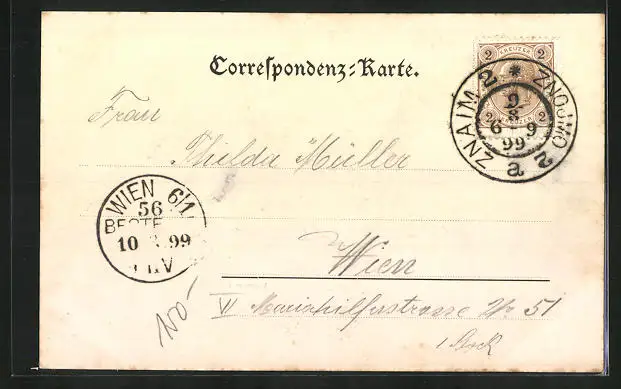 Correspondenz-Karte.
2 KREUZER 2
2 KREUZER 2
ZNAIM 2 * ZNOJMO 2
9
3
6 9
99
a
Frau
Thilda Müller
WIEN 6/1
56
BESTE
10 99
V
Wien
VI Mariahilferstrasse No 51
1 Stock
100-